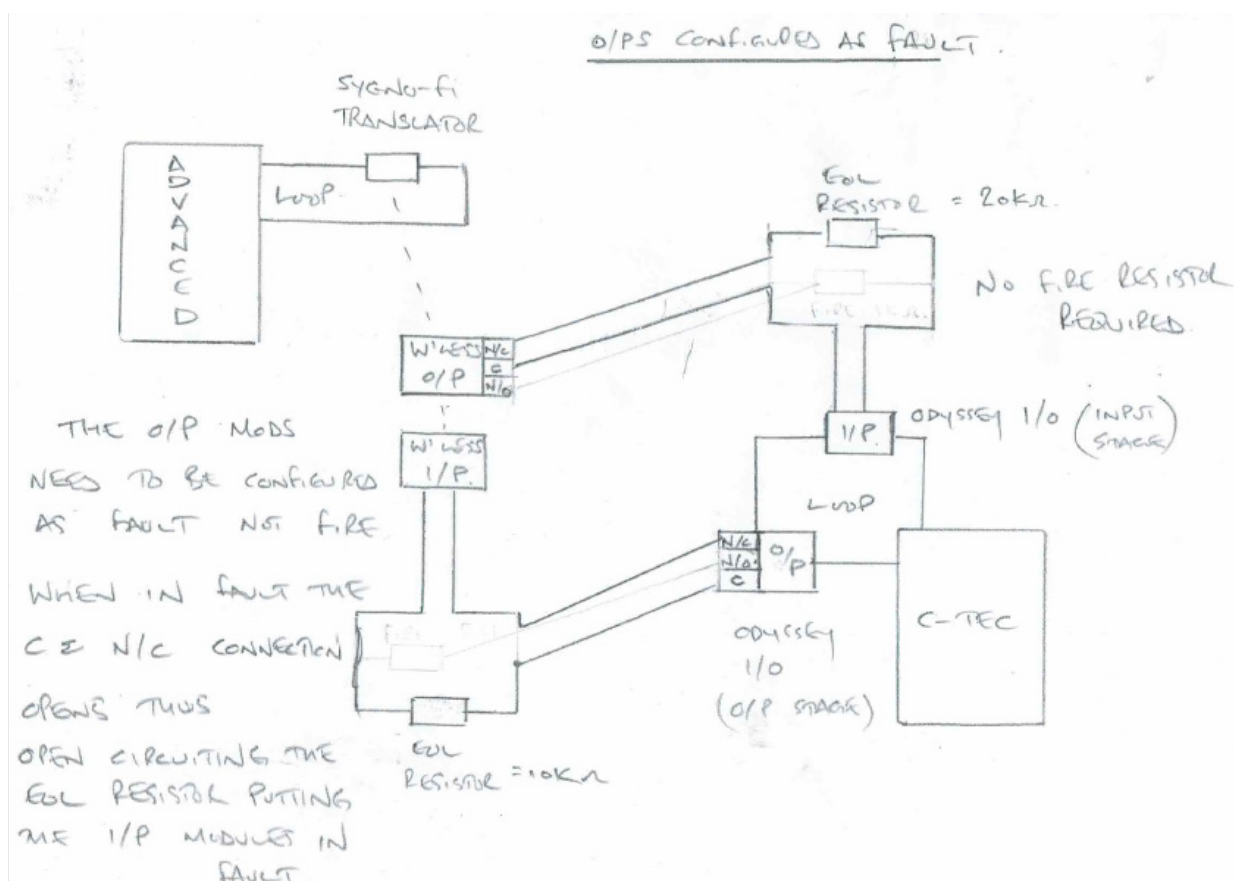 O/PS CONFIGURED AS FAULT.
SYGNO-Fi
TRANSLATOR
ADVANCED
LOOP
EOL
RESISTOR = 20KΩ.
FIRE 1KΩ.
NO FIRE RESISTOR
REQUIRED.
W'LESS
O/P
N/C
C
N/O
W'LESS
I/P.
I/P.
ODYSSEY I/O (INPUT
STAGE)
LOOP
N/C
N/O
C
O/P
C-TEC
ODYSSEY
I/O
(O/P STAGE)
EOL
RESISTOR = 10KΩ
THE O/P MODS
NEED TO BE CONFIGURED
AS FAULT NOT FIRE
WHEN IN FAULT THE
C & N/C CONNECTION
OPENS THUS
OPEN CIRCUITING THE
EOL RESISTOR PUTTING
THE I/P MODULES IN
FAULT